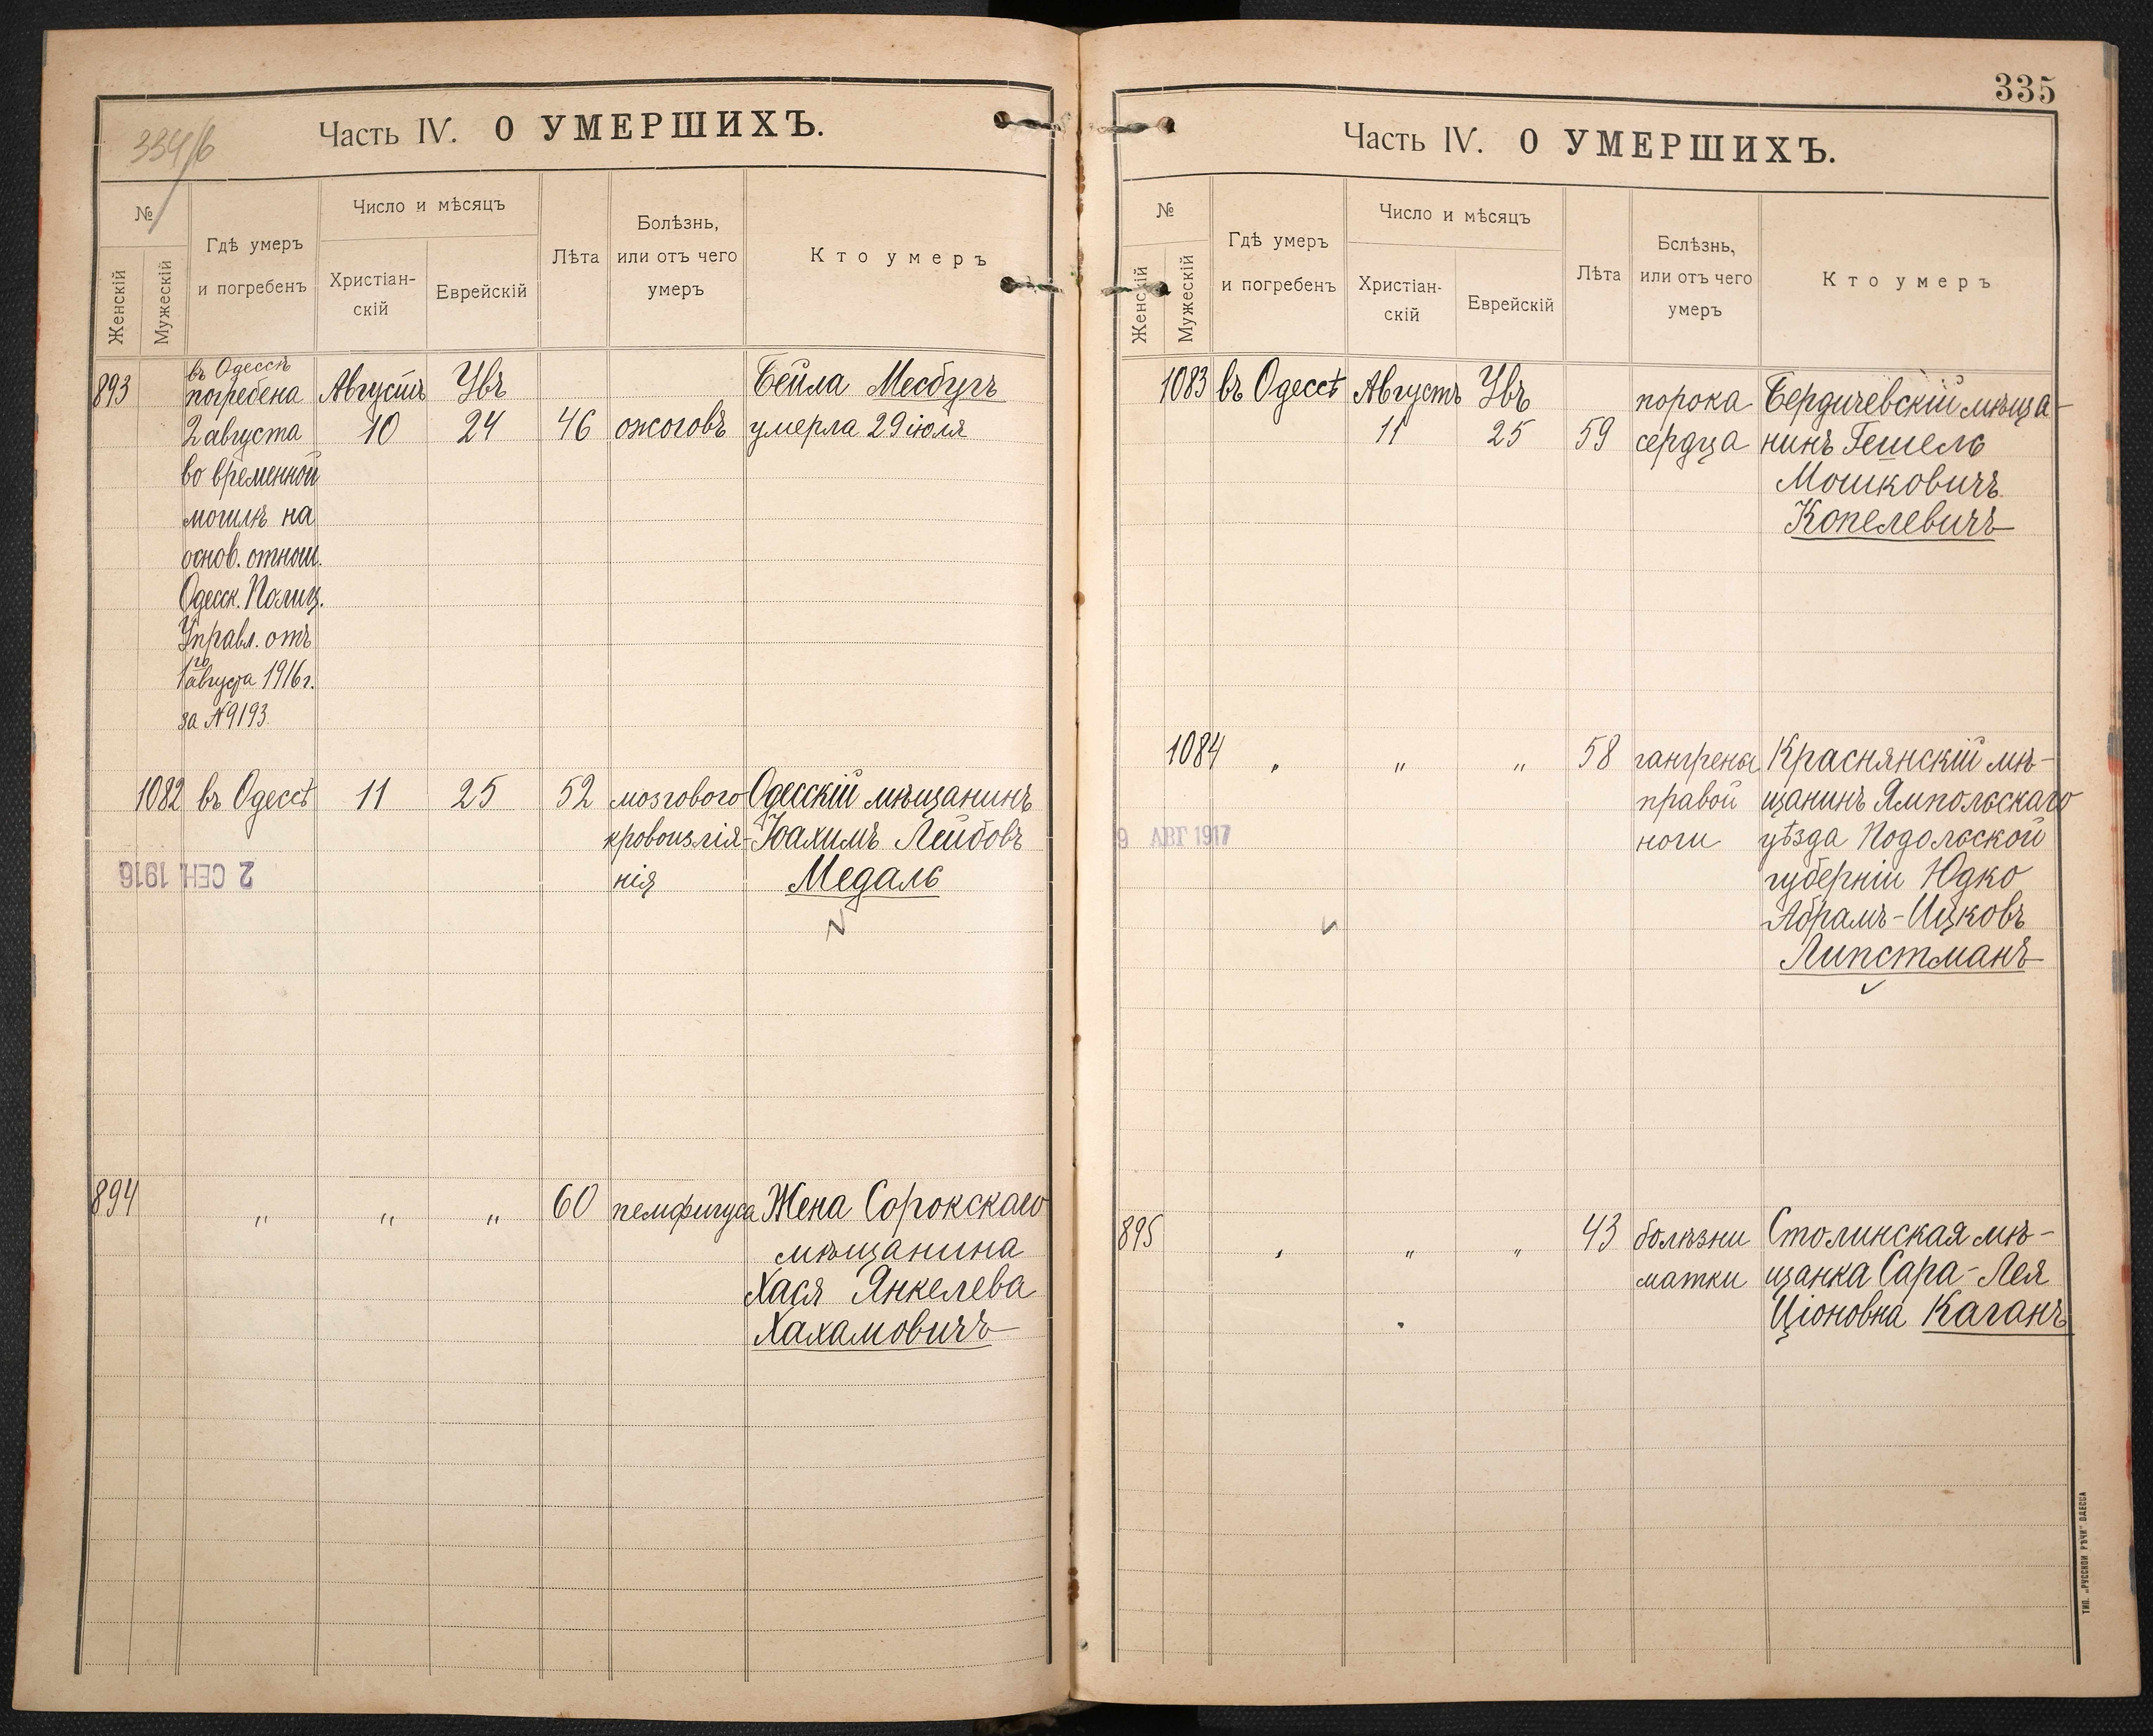 334/6
Часть IV. О УМЕРШИХЪ.
№
Женскій
Мужескій
Гдѣ умеръ
и погребенъ
Число и мѣсяцъ
Христіан-
скій
Еврейскій
Лѣта
Болѣзнь,
или отъ чего
умеръ
Кто умеръ
893
въ Одессѣ
погребена
2 августа
во временной
могилѣ на
основ. отнош.
Одесск. Полиц.
Управл. отъ
1го августа 1916 г.
за №9193.
Августъ
10
Увъ
24
46
ожоговъ
Бейла Месбугъ
умерла 29 іюля
1082
въ Одессѣ
11
25
52
мозгового
кровоизлія-
нія
Одесскій мѣщанинъ
Іоахимъ Лейбовъ
Медаль
2 СЕН. 1916
894
"
"
"
60
пемфигуса
Жена Сорокскаго
мѣщанина
Хася Янкелева
Хахамовичъ
335
Часть IV. О УМЕРШИХЪ.
№
Женскій
Мужескій
Гдѣ умеръ
и погребенъ
Число и мѣсяцъ
Христіан-
скій
Еврейскій
Лѣта
Бслѣзнь,
или отъ чего
умеръ
Кто умеръ
1083
въ Одессѣ
Августъ
11
Увъ
25
59
порока
сердца
Бердичевскій мѣща-
нинъ Гешель
Мошковичъ
Копелевичъ
1084
"
"
"
58
гангрены
правой
ноги
Краснянскій мѣ-
щанинъ Ямпольскаго
уѣзда Подольской
губерніи Юдко
Абрамъ-Ицковъ
Липстманъ
9 АВГ 1917
895
"
"
"
43
болѣзни
матки
Столинская мѣ-
щанка Сара-Лея
Ціоновна Каганъ
ТИП. „РУССКОЙ РѢЧИ" ОДЕССА